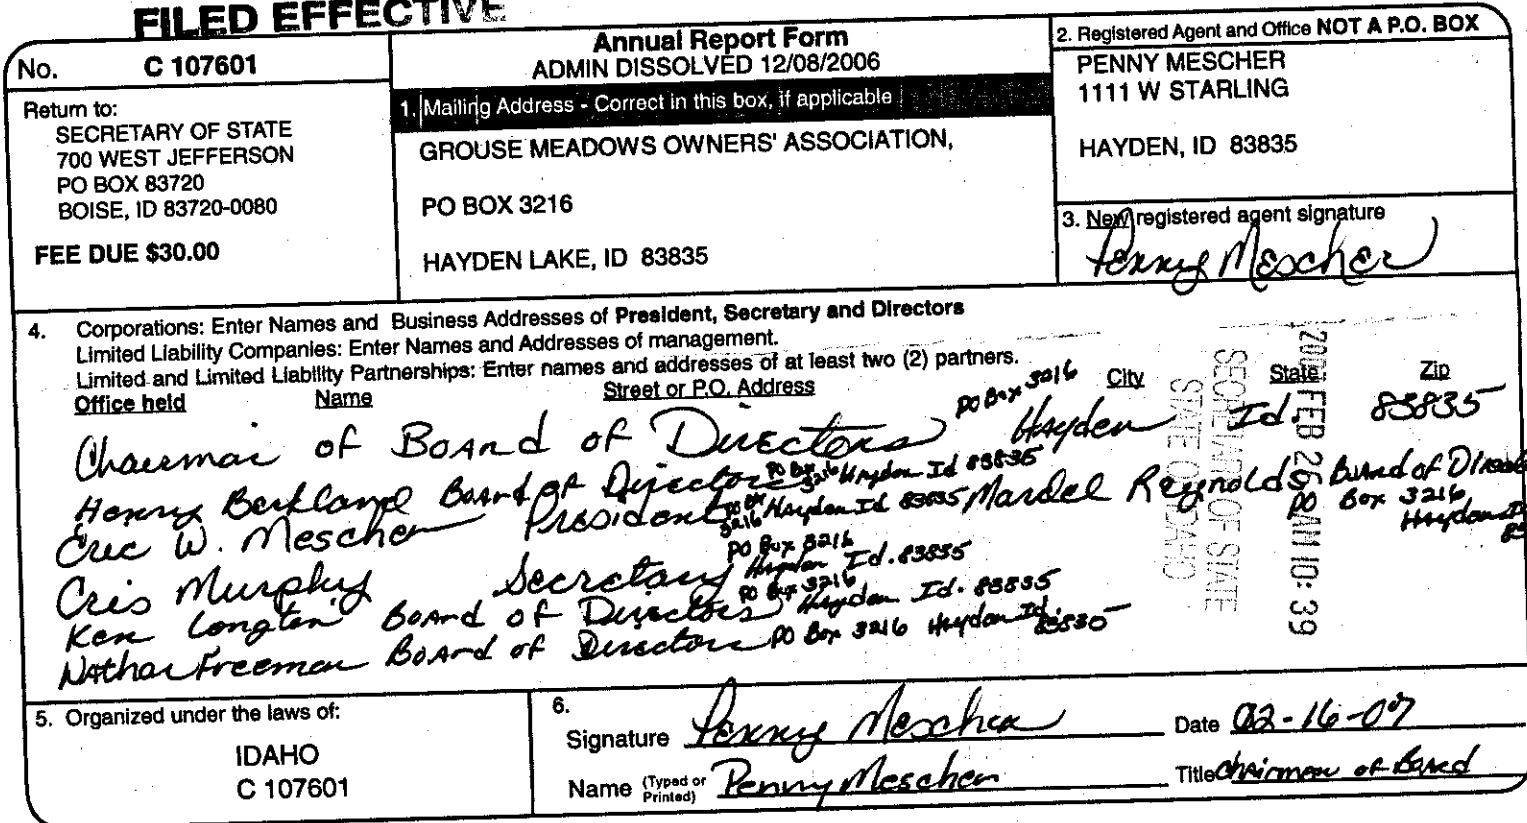 FILED EFFECTIVE
No. C 107601
Return to:
SECRETARY OF STATE
700 WEST JEFFERSON
PO BOX 83720
BOISE, ID 83720-0080
FEE DUE $30.00
Annual Report Form
ADMIN DISSOLVED 12/08/2006
1. Mailing Address - Correct in this box, if applicable
GROUSE MEADOWS OWNERS' ASSOCIATION,
PO BOX 3216
HAYDEN LAKE, ID 83835
2. Registered Agent and Office NOT A P.O. BOX
PENNY MESCHER
1111 W STARLING
HAYDEN, ID 83835
3. New registered agent signature
Penny Mescher
4. Corporations: Enter Names and Business Addresses of President, Secretary and Directors
Limited Liability Companies: Enter Names and Addresses of management.
Limited and Limited Liability Partnerships: Enter names and addresses of at least two (2) partners.
Office held Name Street or P.O. Address City State Zip
Chairman of Board of Directors PO Box 3216 Hayden Id. 83835
Henry Berkland Board of Directors PO Box 3216 Hayden Id 83835
Eric W. Mescher President PO Box 3216 Hayden Id 83835 Mardel Reynolds Board of PO Box 3216 Hayden
Cris Murphy Secretary PO Box 3216 Hayden Id. 83835
Ken Longton Board of Directors PO Box 3216 Hayden Id. 83835
Nathan Freeman Board of Directors PO Box 3216 Hayden Id.
FEB 26 AM 10:39
SECRETARY OF STATE
STATE OF IDAHO
5. Organized under the laws of:
IDAHO
C 107601
6.
Signature Penny Mescher Date 02-16-07
Name (Typed or Printed) Penny Mescher Title Chairman of Board